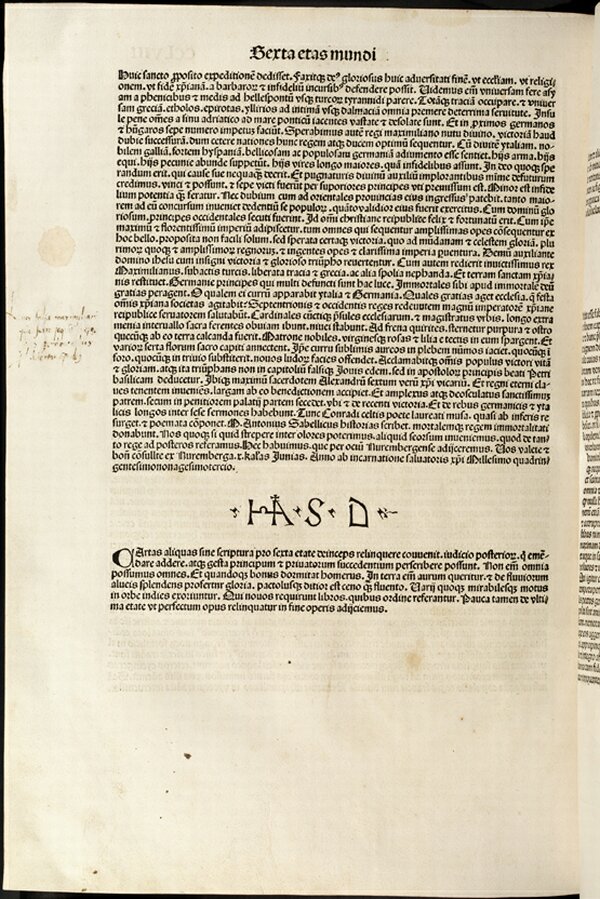 Sexta etas mundi
Huic sancto ꝓposito expeditionē dedisset. Faxitqꝫ deꝰ gloriosus huic aduersitati finē. vt eccliam. vt religi
onem. vt fidē xp̄ianā. a barbaroꝝ ⁊ infideliū incursibꝰ defendere possit. Uidemus em̄ vniuersam fere asy
am a phenicibus ⁊ medis ad hellespontū vsqꝫ turcoꝝ tyrannidi parere. Totāqꝫ traciā occupare. ⁊ vniuer
sam greciā. etholos. epirotas. yllirios ad intimā vsqꝫ dalmaciā omnia premere deterrima seruitute. Insu
le pene om̄es a sinu adriatico ad mare ponticū iacentes vastate ⁊ desolate sunt. Et in ꝓximos germanos
⁊ hūgaros sepe numero impetus faciūt. Sperabimus autē regi maximiliano nutu diuino. victoriā haud
dubie successurā. dum cetere nationes hunc regem atqꝫ ducem optimū sequentur. Cū diuitē ytaliam. no-
bilem galliā. fortem hyspaniā. bellicosam ac populosam germaniā adiumento esse sentiet. hijs arma. hijs
equi. hijs pecunie abunde suppetūt. hijs vires longo maiores. quā infidelibus assunt. In deo quoqꝫ spe
randum erit. qui cause sue nequaqꝫ deerit. Et pugnaturis diuinū auxiliū implorantibus mīme defuturum
credimus. vinci ⁊ possunt. ⁊ sepe victi fuerūt per superiores principes vti premissum est. Minor est infide
lium potentia q̄ꝫ feratur. Nec dubium cum ad orientales prouincias eius ingressusꝰ patebit. tanto maio-
rem ad eū concursum inuiet dedentiū se populoꝝ. quāto validior eius fuerit exercitus. Cum dominū glo
riosum. principes occidentales secuti fuerint. Id om̄i christiane reipublice felix ⁊ fortunatū erit. Cum ip̄e
maximū ⁊ florentissimū imperiū adipiscetur. tum omnes qui sequentur amplissimas opes cōsequentur ex
hoc bello. proposita non facili solum. sed sperata certaqꝫ victoria. quo ad mūdanam ⁊ celestem gloriā. plu
rimoꝝ quoqꝫ ⁊ amplissimoꝝ regnoꝝ. ⁊ ingentes opes ⁊ clarissima imperia ꝓuentura. Demū auxiliante
domino ihesu cum insigni victoria ⁊ glorioso triūpho reuertentur. Cum autem redierit inuictissimus rex
Maximilianus. subactis turcis. liberata tracia ⁊ grecia. ac alia spolia nephanda. Et terram sanctam xp̄ia
nis restituet. Germanie principes qui multi defuncti sunt hac luce. Immortales sibi apud immortalē deū
gratias peragent. O qualem ei currū apparabit ytalia ⁊ Germania. Quales gratias aget ecclesia. q̄ festa
om̄is xp̄iana societas agitabit. Septentrionis ⁊ occidentis reges reducentem magnū imperatorē xp̄iane
reipublice seruatorem salutabūt. Cardinales cūctiqꝫ p̄sules ecclesiarum. ⁊ magistratus vrbis. longo extra
menia interuallo sacra ferentes obuiam ibunt. niuei stabunt. Ad frena quirites. sternetur purpura ⁊ ostro
quecūqꝫ ab eo terra calcanda fuerit. Matrone nobiles. virginesqꝫ rosas ⁊ lilia e tectis in eum spargent. Et
varioꝝ serta floꝝum sacro capiti annectent. Ip̄e curru sublimis aureos in plebem nūmos iaciet. quocūqꝫ i
foro. quocūqꝫ in triuio substiterit. nouos ludoꝝ facies offendet. Acclamabitqꝫ om̄is populus victori vitā
⁊ gloriam. atqꝫ ita triūphans non in capitoliū falsiqꝫ Jouis edem. sed in apostoloꝝ principis beati Petri
basilicam deducetur. Ibiqꝫ maximū sacerdotem Alexandrū sextum verū xp̄i vicariū. Et regni eterni cla-
ues tenentem inueniens. largam ab eo benedictionem accipiet. Et amplexus atqꝫ deosculatus sanctissimū
patrem. secum in penitiorem palatij partem secedet. vbi ⁊ de recenti victoria. Et de rebus germanicis ⁊ yta
licis longos inter sese sermones habebunt. Tunc Conradi celtis poete laureati musa. quasi ab inferis re
surget. ⁊ poemata cōponet. M. Antonius Sabellicus historias scribet. mortalemqꝫ regem immortalitati
donabunt. Nos quoqꝫ si quid strepere inter olores poterimus. aliquid seorsum inueniemus. quod de tan-
to rege ad posteros referamus. Hec habuimus. que per ociū Nurembergense adijceremus. Uos valete ⁊
boni cōsulite ex Nuremberga. x. kalas Junias. Anno ab incarnatione saluatoris xp̄i Millesimo quadrin
gentesimononagesimotercio.
HA S D
CArtas aliquas sine scriptura pro sexta etate deinceps relinquere conuenit. iudicio posterioꝝ. q̄ emē-
dare addere. atqꝫ gesta principum ⁊ priuatorum succedentium perscribere possunt. Non em̄ omnia
possumus omnes. Et quandoqꝫ bonus dormitat homerus. In terra em̄ aurum queritur. ⁊ de fluuiorum
alueis splendens profertur gloria. pactolusqꝫ ditior est ceno q̄ꝫ fluento. Uarij quoqꝫ mirabilesqꝫ motus
in orbe indies exoriuntur. Qui nouos requirunt libros. quibus ordine referantur. Pauca tamen de vlti-
ma etate vt perfectum opus relinquatur in fine operis adijciemus.